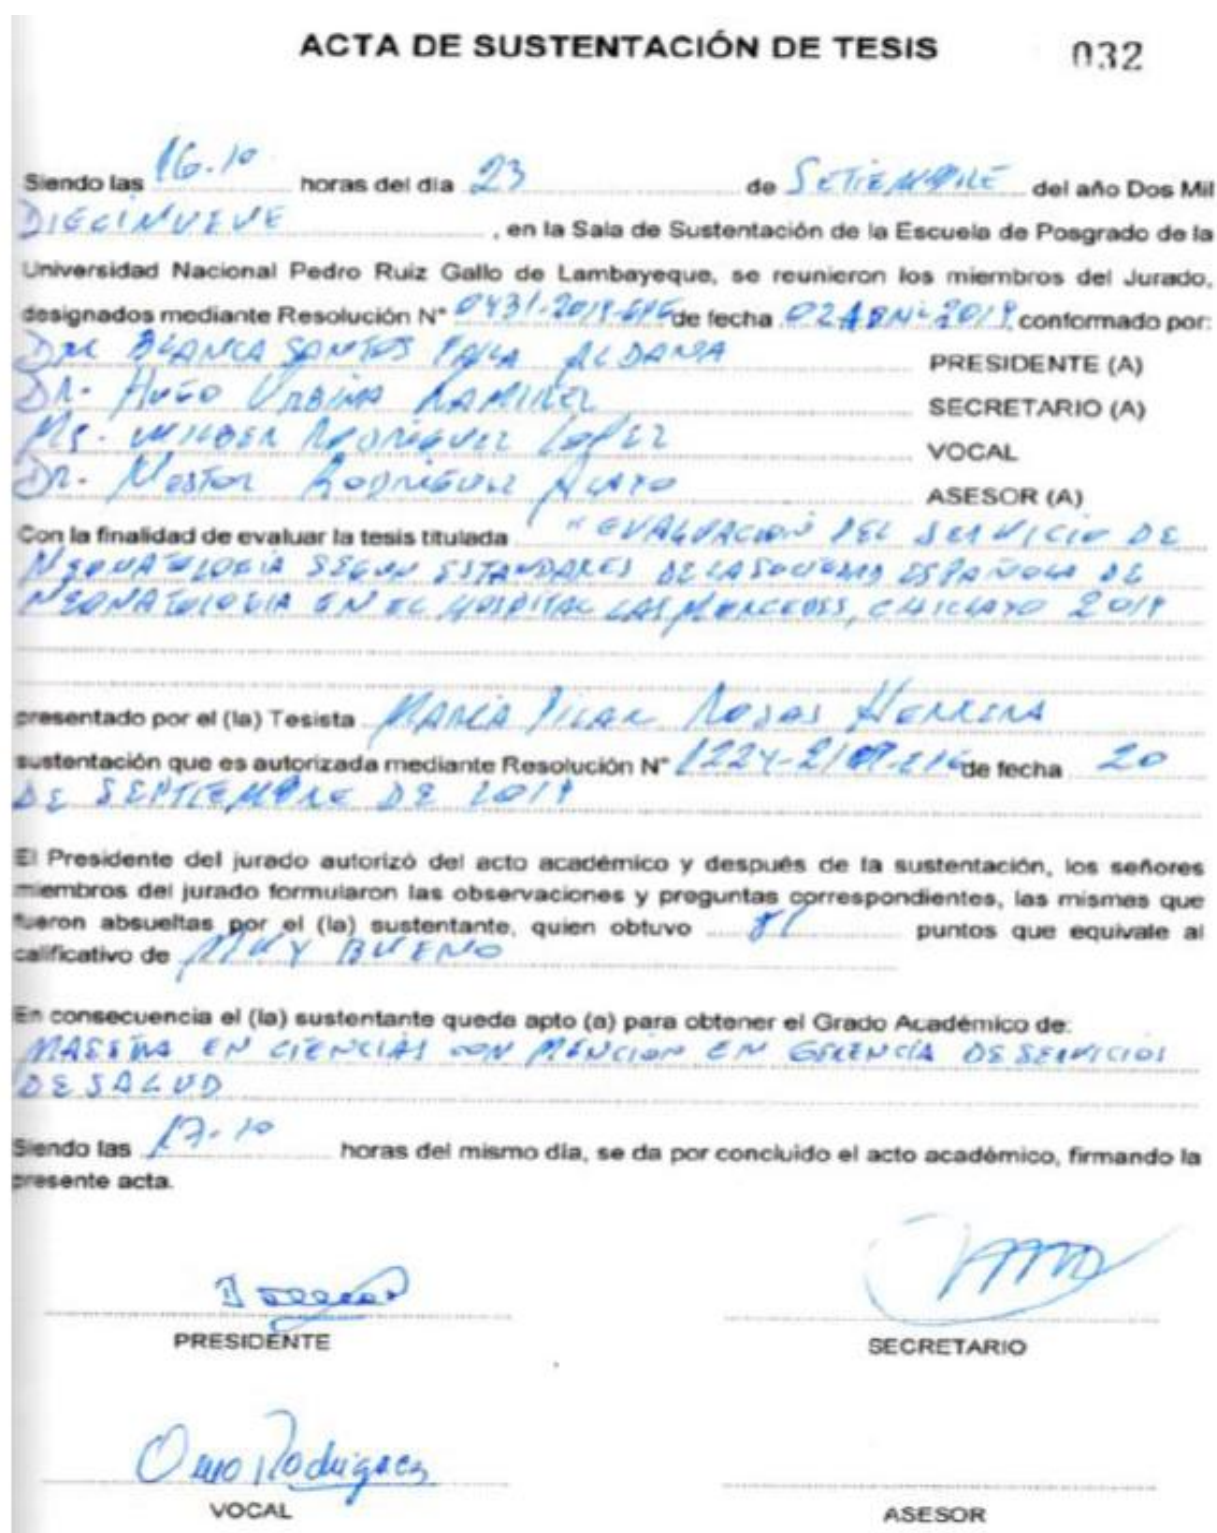 ACTA DE SUSTENTACIÓN DE TESIS 032
Siendo las 16.10 horas del día 23 de SETIEMBRE del año Dos Mil
DIECINUEVE, en la Sala de Sustentación de la Escuela de Posgrado de la
Universidad Nacional Pedro Ruiz Gallo de Lambayeque, se reunieron los miembros del Jurado,
designados mediante Resolución N° 0431-2019-EPG de fecha 02 ABRIL 2019, conformado por:
BLANCA SANTOS FALLA ALDANA PRESIDENTE (A)
DR. HUGO URBINA RAMIREZ SECRETARIO (A)
Mg. WILDER RODRIGUEZ LOPEZ VOCAL
DR. NESTOR RODRIGUEZ ALAYO ASESOR (A)
Con la finalidad de evaluar la tesis titulada "EVALUACION DEL SERVICIO DE
NEONATOLOGIA SEGUN ESTANDARES DE LA SOCIEDAD ESPAÑOLA DE
NEONATOLOGIA EN EL HOSPITAL LAS MERCEDES, CHICLAYO 2019
presentado por el (la) Tesista MARIA PILAR ROJAS HERRERA
sustentación que es autorizada mediante Resolución N° de fecha 20
DE SEPTIEMBRE DE 2019
El Presidente del jurado autorizó del acto académico y después de la sustentación, los señores
miembros del jurado formularon las observaciones y preguntas correspondientes, las mismas que
fueron absueltas por el (la) sustentante, quien obtuvo puntos que equivale al
calificativo de MUY BUENO
En consecuencia el (la) sustentante queda apto (a) para obtener el Grado Académico de:
MAESTRA EN CIENCIAS CON MENCION EN GERENCIA DE SERVICIOS
DE SALUD
Siendo las 17.10 horas del mismo día, se da por concluido el acto académico, firmando la
presente acta.
PRESIDENTE SECRETARIO
Rodriguez
VOCAL ASESOR